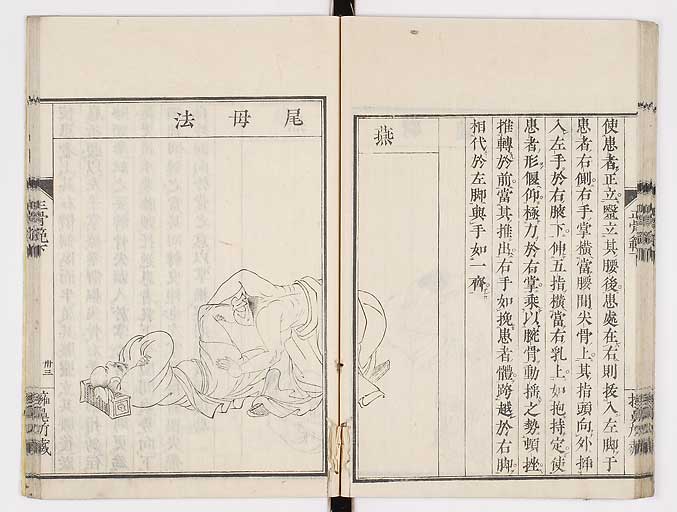 使患者正立、毉立其腰後、患處在右則扱入左脚于
患者右側、右手掌橫當腰間尖骨上、其指頭向外、揷
入左手於右腋下、伸五指橫當右乳上、如抱持定、使
患者形偃仰、極力於右掌、乘以腕骨動揺之勢、頓挫
推轉於前、當其推出、右手如挽患者體、跨越於右脚、
相代於左脚與手如一齊、
燕
尾母法
正骨範下
卅三